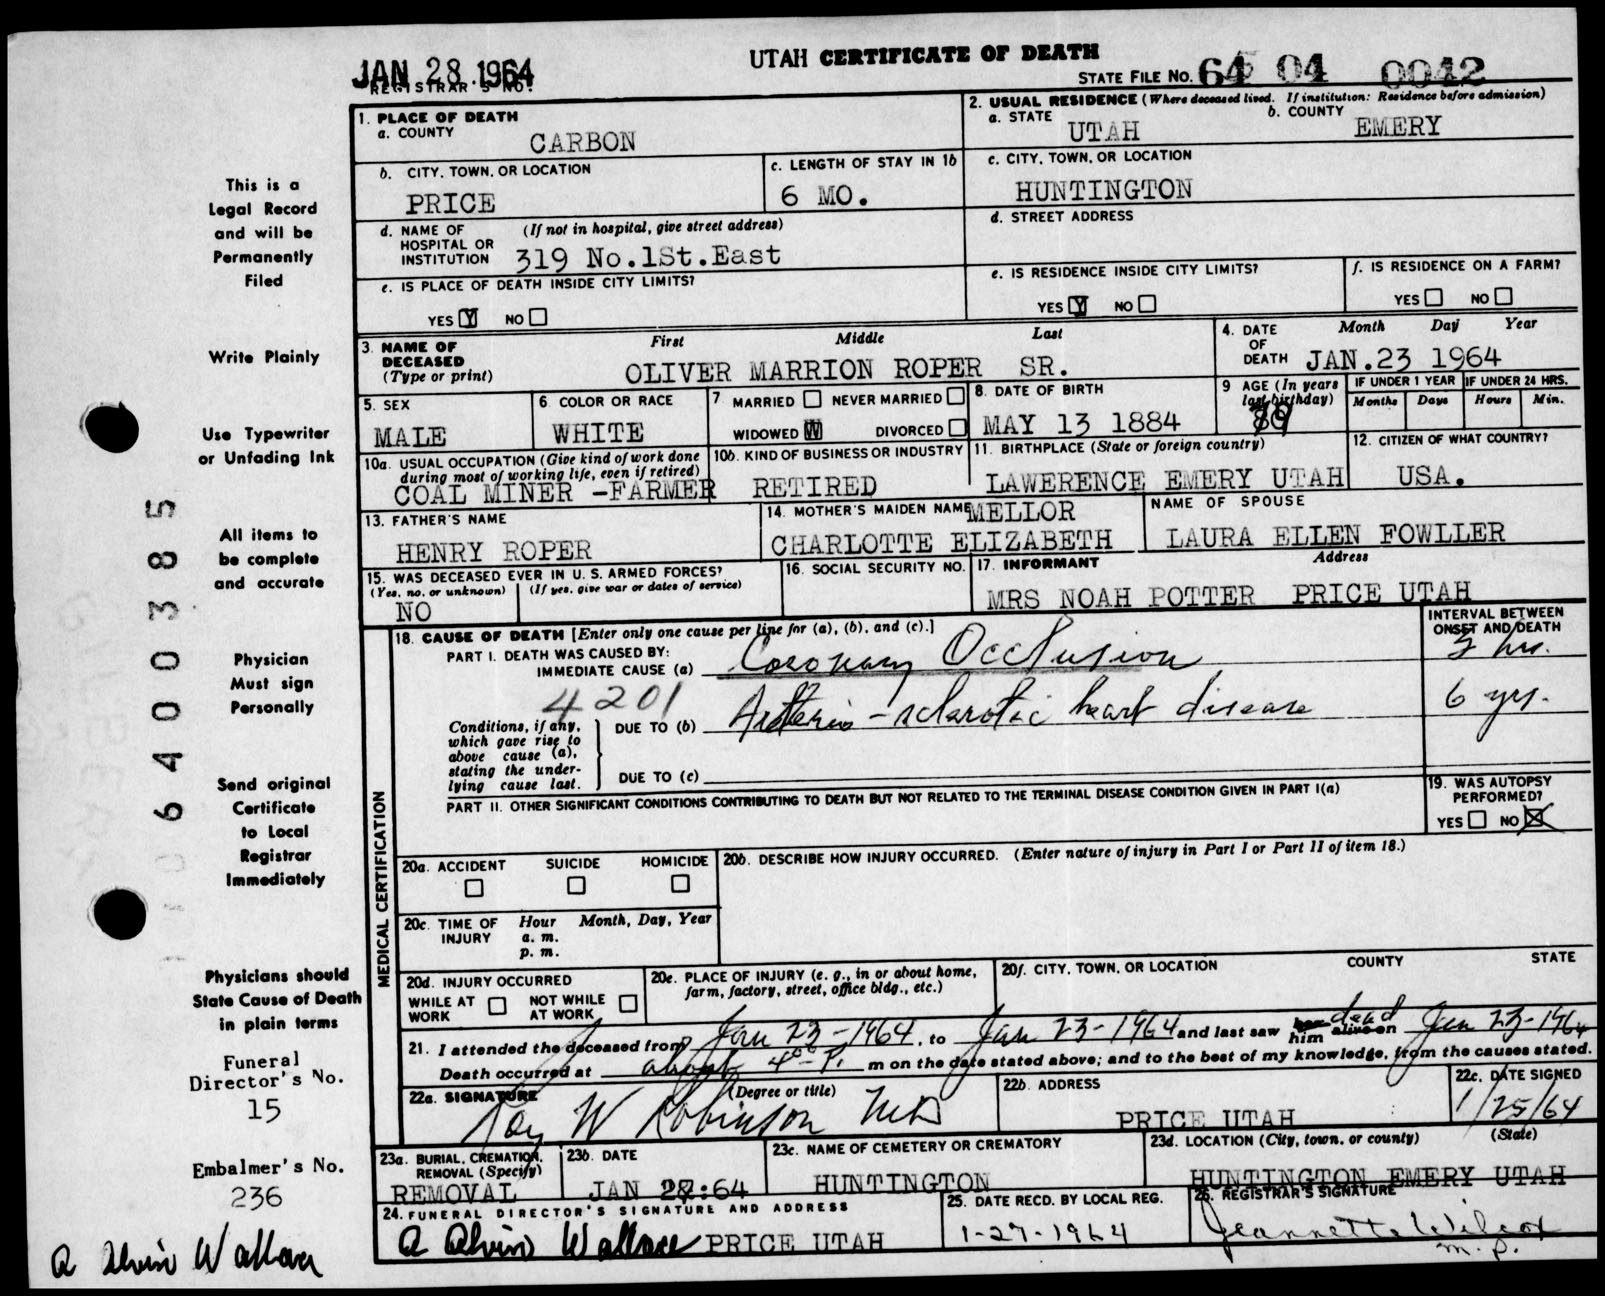 JAN 28 1964
REGISTRAR'S NO.
UTAH CERTIFICATE OF DEATH
STATE FILE NO. 64 04 0042
1. PLACE OF DEATH
a. COUNTY
CARBON
2. USUAL RESIDENCE (Where deceased lived. If institution: Residence before admission)
a. STATE
UTAH
b. COUNTY
EMERY
b. CITY, TOWN, OR LOCATION
PRICE
c. LENGTH OF STAY IN 1b
6 MO.
c. CITY, TOWN, OR LOCATION
HUNTINGTON
d. NAME OF HOSPITAL OR INSTITUTION
(If not in hospital, give street address)
319 No.1St.East
d. STREET ADDRESS
e. IS PLACE OF DEATH INSIDE CITY LIMITS?
YES Y NO
e. IS RESIDENCE INSIDE CITY LIMITS?
YES Y NO
f. IS RESIDENCE ON A FARM?
YES NO
3. NAME OF DECEASED (Type or print)
First Middle Last
OLIVER MARRION ROPER SR.
4. DATE OF DEATH
Month Day Year
JAN.23 1964
5. SEX
MALE
6 COLOR OR RACE
WHITE
7 MARRIED NEVER MARRIED
WIDOWED W DIVORCED
8. DATE OF BIRTH
MAY 13 1884
9 AGE (In years last birthday)
79
IF UNDER 1 YEAR
Months Days
IF UNDER 24 HRS.
Hours Min.
10a. USUAL OCCUPATION (Give kind of work done during most of working life, even if retired)
COAL MINER -FARMER
10b. KIND OF BUSINESS OR INDUSTRY
RETIRED
11. BIRTHPLACE (State or foreign country)
LAWERENCE EMERY UTAH
12. CITIZEN OF WHAT COUNTRY?
USA.
13. FATHER'S NAME
HENRY ROPER
14. MOTHER'S MAIDEN NAME
MELLOR
CHARLOTTE ELIZABETH
NAME OF SPOUSE
LAURA ELLEN FOWLLER
15. WAS DECEASED EVER IN U. S. ARMED FORCES?
(Yes, no, or unknown) (If yes, give war or dates of service)
NO
16. SOCIAL SECURITY NO.
17. INFORMANT Address
MRS NOAH POTTER PRICE UTAH
MEDICAL CERTIFICATION
18. CAUSE OF DEATH [Enter only one cause per line for (a), (b), and (c).]
INTERVAL BETWEEN ONSET AND DEATH
PART I. DEATH WAS CAUSED BY:
IMMEDIATE CAUSE (a) Coronary Occlusion 3 hrs.
4201
Conditions, if any, which gave rise to above cause (a), stating the underlying cause last.
DUE TO (b) Arterio-sclerotic heart disease 6 yrs.
DUE TO (c)
PART II. OTHER SIGNIFICANT CONDITIONS CONTRIBUTING TO DEATH BUT NOT RELATED TO THE TERMINAL DISEASE CONDITION GIVEN IN PART I(a)
19. WAS AUTOPSY PERFORMED?
YES NO X
20a. ACCIDENT SUICIDE HOMICIDE
20b. DESCRIBE HOW INJURY OCCURRED. (Enter nature of injury in Part I or Part II of item 18.)
20c. TIME OF INJURY
Hour Month, Day, Year
a. m.
p. m.
20d. INJURY OCCURRED
WHILE AT WORK NOT WHILE AT WORK
20e. PLACE OF INJURY (e. g., in or about home, farm, factory, street, office bldg., etc.)
20f. CITY, TOWN, OR LOCATION COUNTY STATE
21. I attended the deceased from Jan 23-1964, to Jan 23-1964 and last saw him alive on dead Jan 23-1964
Death occurred at about 4 P. m on the date stated above; and to the best of my knowledge, from the causes stated.
22a. SIGNATURE (Degree or title)
Roy W Robinson MD
22b. ADDRESS
PRICE UTAH
22c. DATE SIGNED
1/25/64
23a. BURIAL, CREMATION, REMOVAL (Specify)
REMOVAL
23b. DATE
JAN 27:64
23c. NAME OF CEMETERY OR CREMATORY
HUNTINGTON
23d. LOCATION (City, town, or county) (State)
HUNTINGTON EMERY UTAH
24. FUNERAL DIRECTOR'S SIGNATURE AND ADDRESS
A Alvin Wallace PRICE UTAH
25. DATE RECD. BY LOCAL REG.
1-27-1964
26. REGISTRAR'S SIGNATURE
Jeannette Wilcox
M.P.
This is a
Legal Record
and will be
Permanently
Filed
Write Plainly
Use Typewriter
or Unfading Ink
All items to
be complete
and accurate
Physician
Must sign
Personally
Send original
Certificate
to Local
Registrar
Immediately
Physicians should
State Cause of Death
in plain terms
Funeral
Director's No.
15
Embalmer's No.
236
A Alvin Wallace
06400385